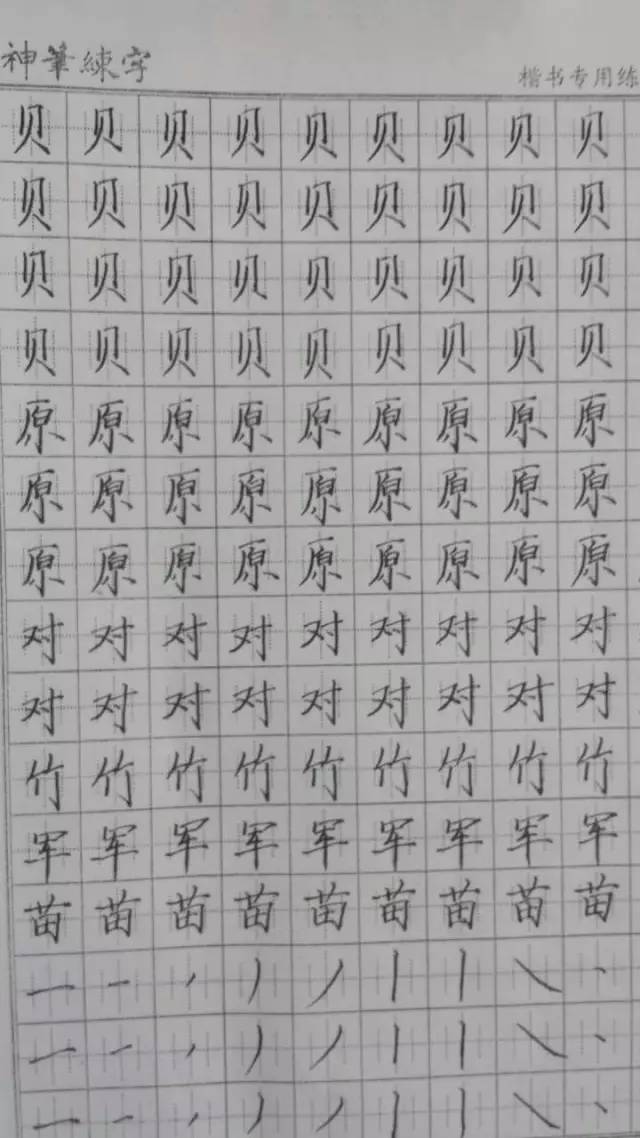 神筆練字
楷书专用练
贝贝贝贝贝贝贝贝贝
贝贝贝贝贝贝贝贝贝
贝贝贝贝贝贝贝贝贝
贝贝贝贝贝贝贝贝贝
原原原原原原原原原
原原原原原原原原原
原原原原原原原原原
对对对对对对对对对
对对对对对对对对对
竹竹竹竹竹竹竹竹竹
军军军军军军军军军
苗苗苗苗苗苗苗苗苗